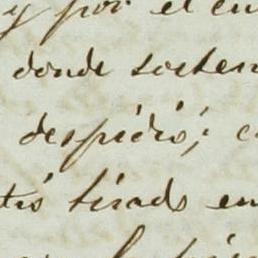 y por el en
donde sosten
despidió; c
tió tirado en